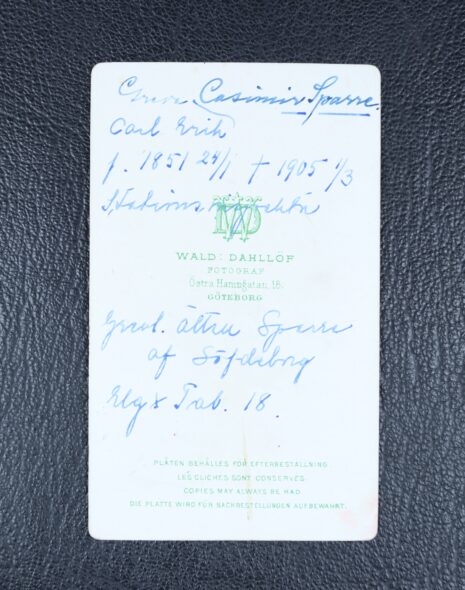 Greve Casimir Sparre.
Carl Erik
f. 1851 24/1 † 1905 1/3
WD
WALD: DAHLLÖF
FOTOGRAF
Östra Hamngatan, 18.
GÖTEBORG
Grevl. ätten Sparre
af Söfdeborg
Elgx Tab. 18.
PLÅTEN BEHÅLLES FÖR EFTERBESTÄLLNING
LES CLICHES SONT CONSERVES
COPIES MAY ALWAYS BE HAD
DIE PLATTE WIRD FÜR NACHBESTELLUNGEN AUFBEWAHRT.